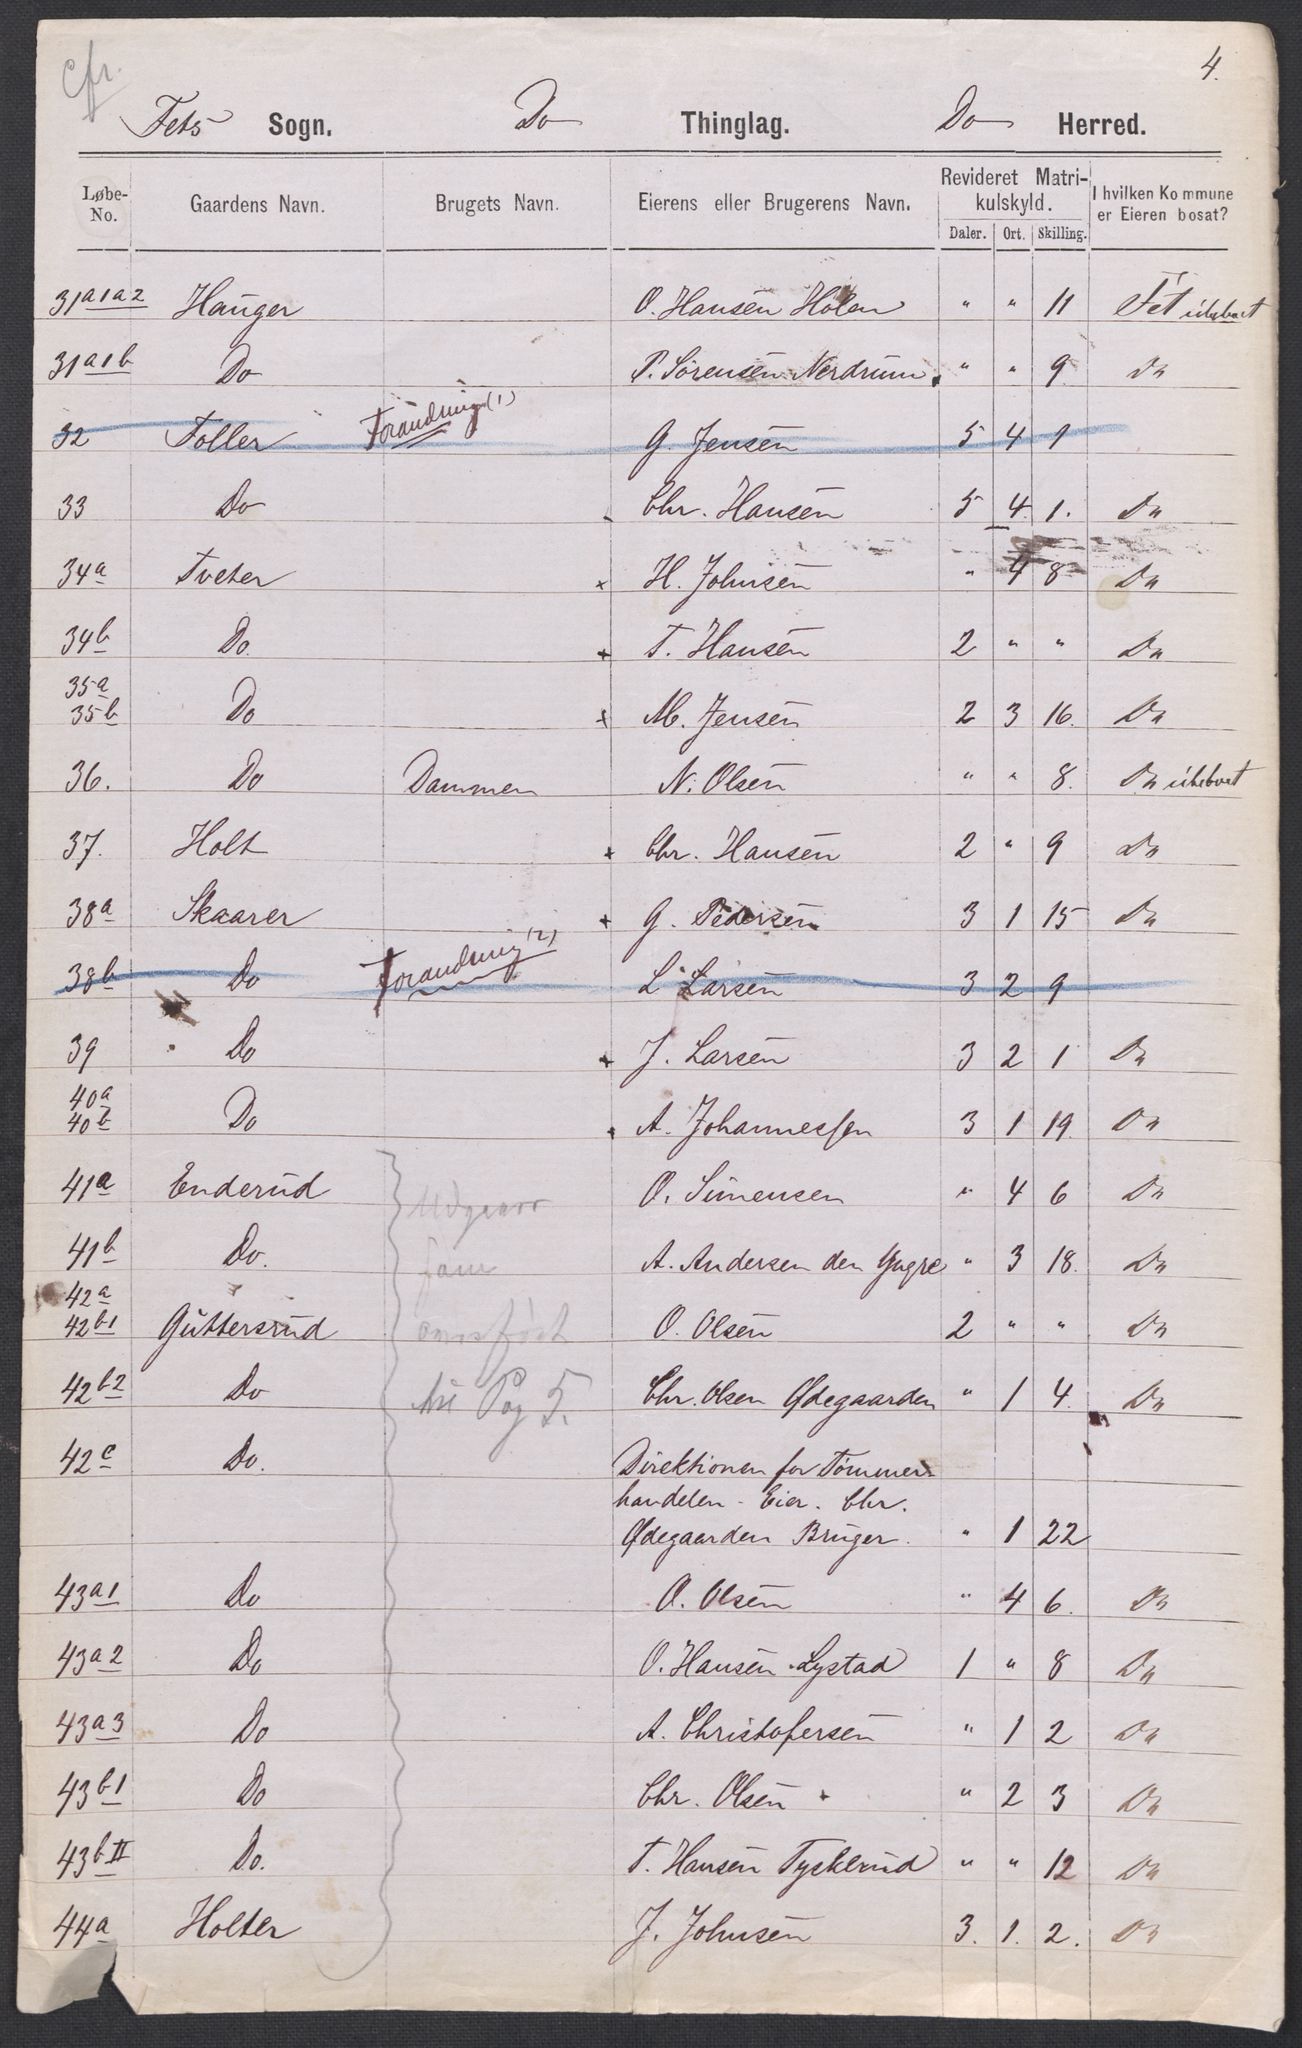 cfr.
4.
Fets Sogn. Do Thinglag. Do Herred.
Løbe-No. Gaardens Navn. Brugets Navn. Eierens eller Brugerens Navn. Revideret Matri-kulskyld. Daler. Ort. Skilling. I hvilken Kommune er Eieren bosat?
31a1a2 Hauger O. Hansen Holen " " 11 Fet ubeboet
31a1b Do P. Sørensen Nerdrum " " 9 Do
32 Foller Forandring (1) G. Jensen 5 4 1
33 Do Chr. Hansen 5 4. 1. Do
34a Tveter + H. Johnsen " 4 8 Do
34b Do. + T. Hansen 2 " " Do
35a
35b Do + M. Jensen 2 3 16. Do
36. Do Dammen N. Olsen " " 8. Do ubeboet
37. Holt + Chr. Hansen 2 " 9 Do
38a Skaarer + G. Pedersen 3 1 15 Do
38b Do Forandring (2) L. Larsen 3 2 9
39 Do + J. Larsen 3 2 1 Do
40a
40b Do A. Johannessen 3 1 19. Do
41a Enderud O. Simensen " 4 6 Do
Udgaar
41b Do. A. Andersen den Yngre " 3 18. Do
som
42a
42b1 Guttersrud O. Olsen 2 " " Do
omført
42b2 Do Chr. Olsen Ødegaarden " 1 4. Do
til Pag 5.
42c Do. Direktionen for Tømmer-
handelen - Eier. Chr.
Ødegaarden Bruger. " 1 22
43a1 Do O. Olsen " 4 6. Do
43a2 Do O. Hansen Lystad 1 " 8 Do
43a3 Do A. Christofersen " 1 2 Do
43b1 Do Chr. Olsen " 2 3 Do
43bII Do. T. Hansen Tyskerud " " 12 Do
44a Holter J. Johnsen 3. 1. 2. Do